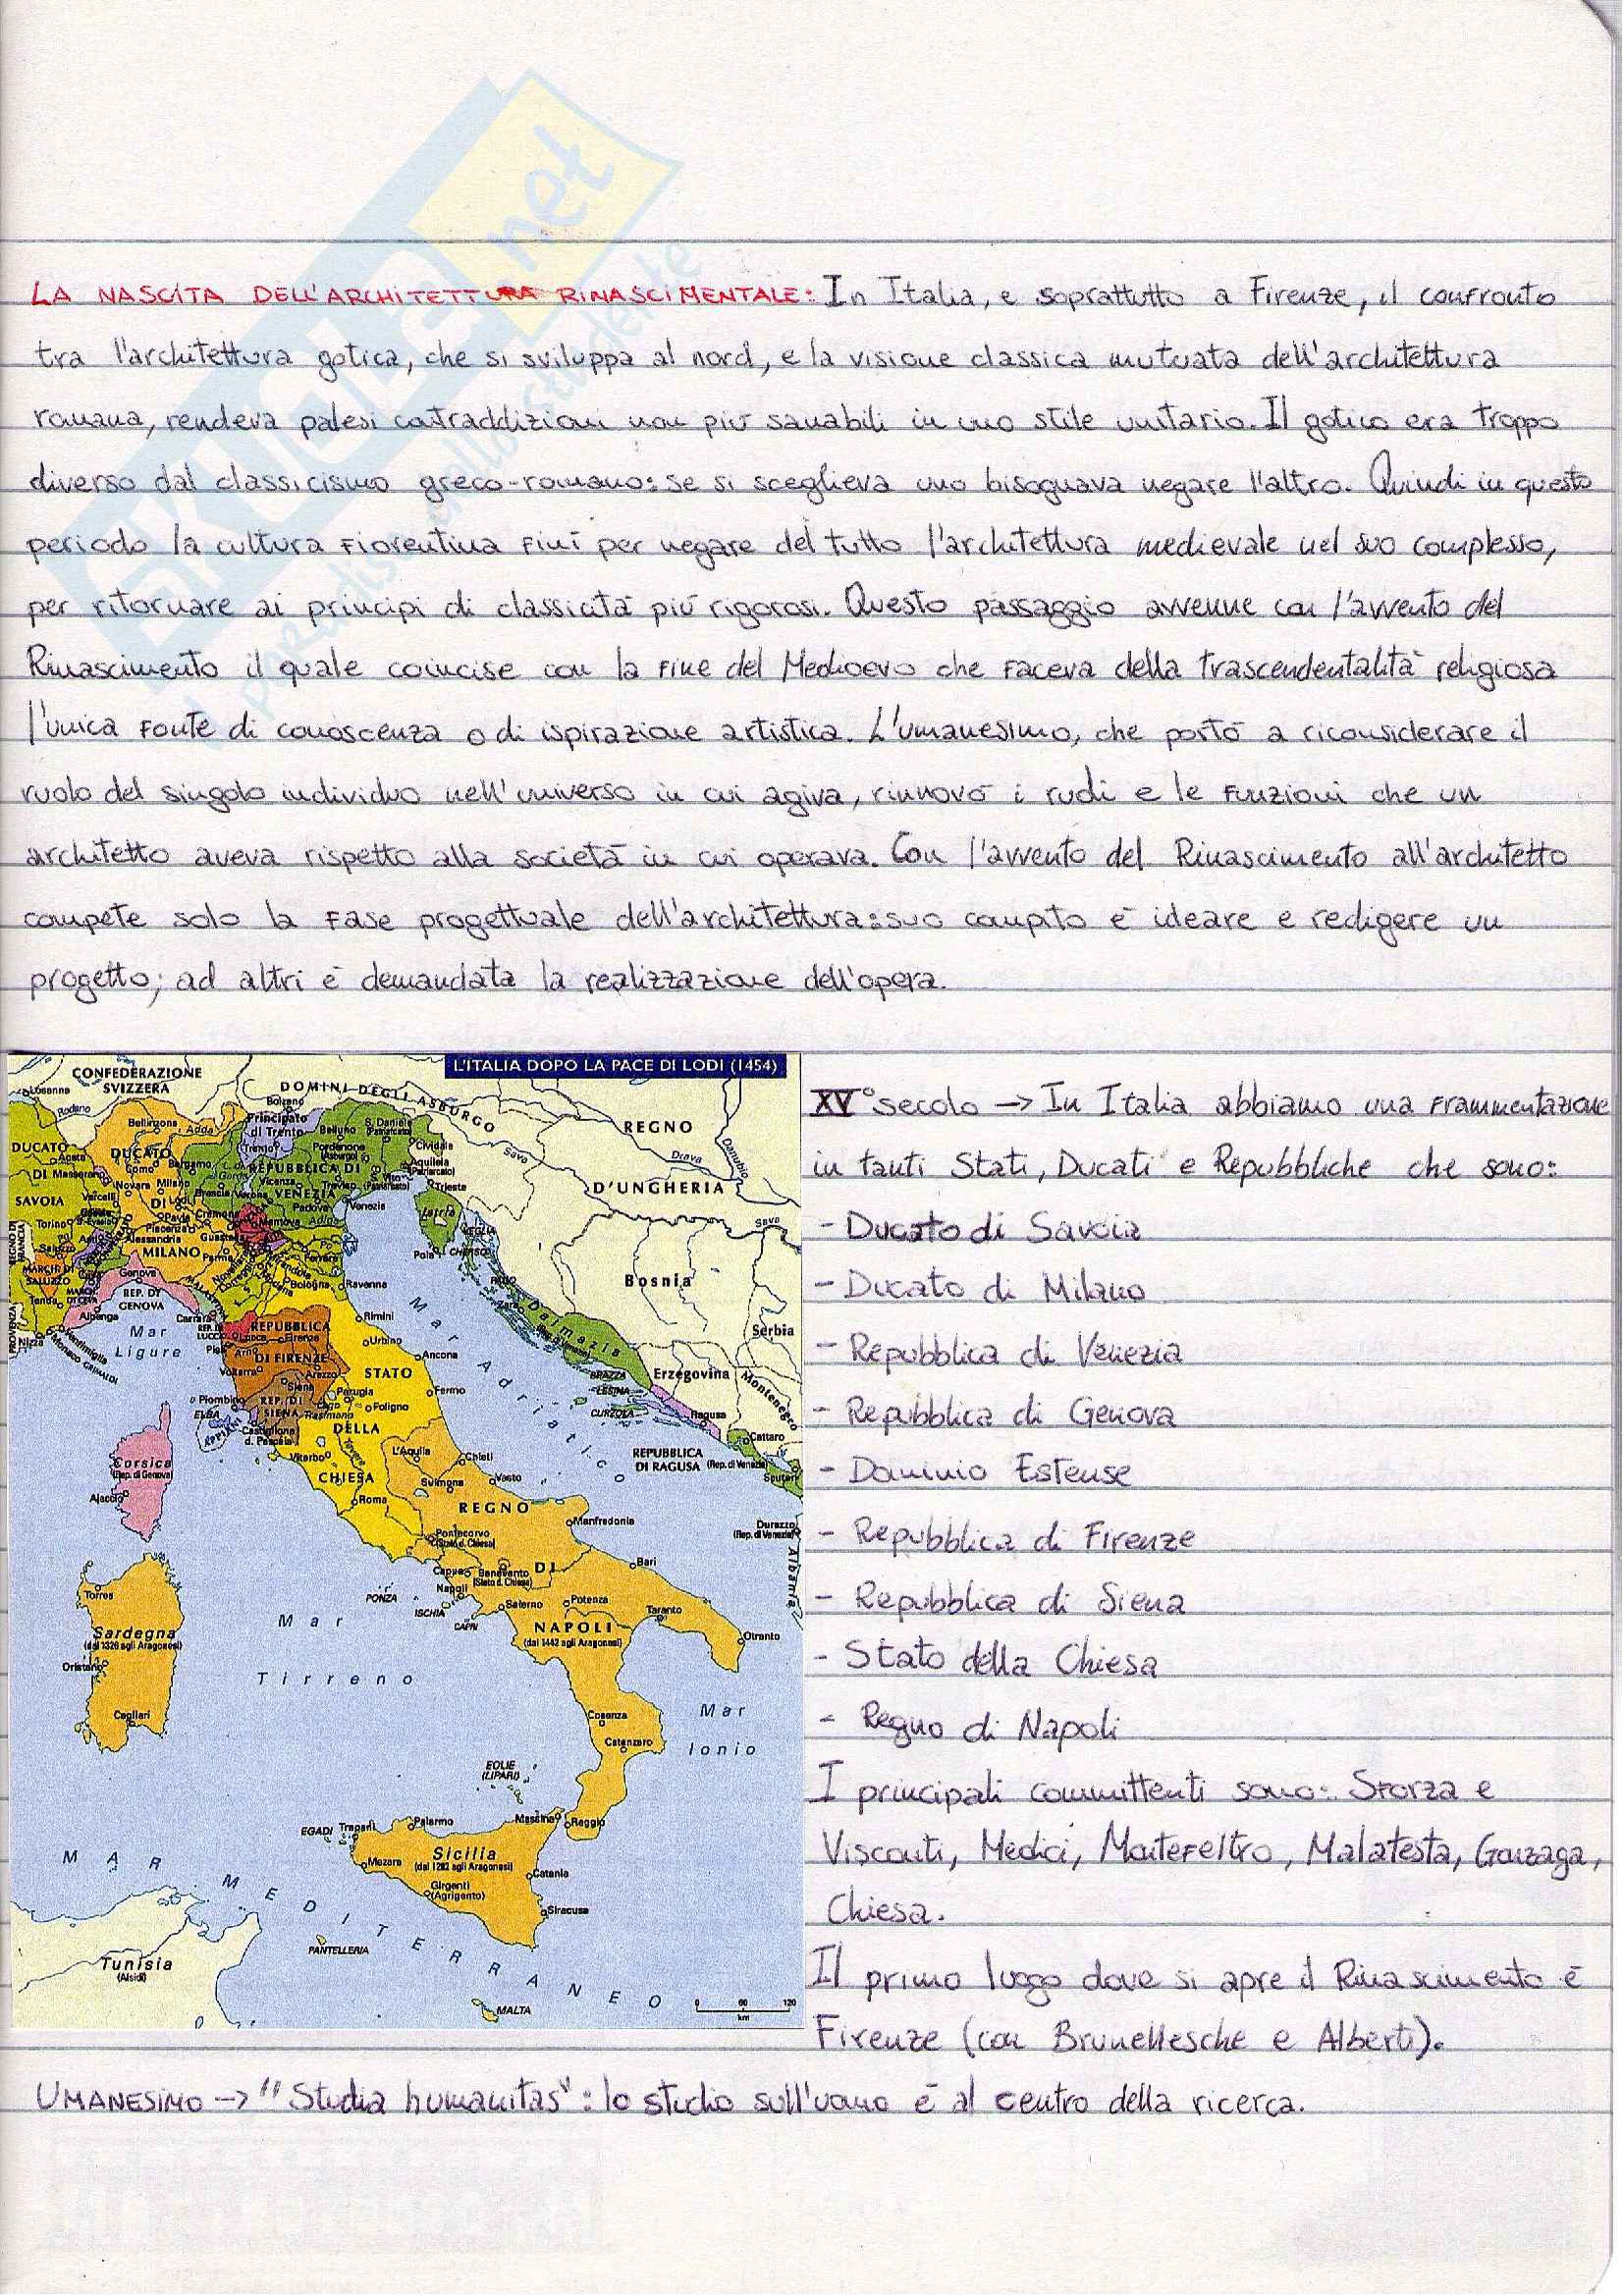 LA NASCITA DELL'ARCHITETTURA RINASCIMENTALE: In Italia, e soprattutto a Firenze, il confronto
tra l'architettura gotica, che si sviluppa al nord, e la visione classica mutuata dell'architettura
romana, rendeva palesi contraddizioni non più sanabili in uno stile unitario. Il gotico era troppo
diverso dal classicismo greco-romano: se si sceglieva uno bisognava negare l'altro. Quindi in questo
periodo la cultura fiorentina finì per negare del tutto l'architettura medievale nel suo complesso,
per ritornare ai principi di classicità più rigorosi. Questo passaggio avvenne con l'avvento del
Rinascimento il quale coincise con la fine del Medioevo che faceva della trascendentalità religiosa
l'unica fonte di conoscenza o di ispirazione artistica. L'umanesimo, che portò a riconsiderare il
ruolo del singolo individuo nell'universo in cui agiva, rinnovò i ruoli e le funzioni che un
architetto aveva rispetto alla società in cui operava. Con l'avvento del Rinascimento all'architetto
compete solo la fase progettuale dell'architettura: suo compito è ideare e redigere un
progetto; ad altri è demandata la realizzazione dell'opera.
L'ITALIA DOPO LA PACE DI LODI (1454)
CONFEDERAZIONE
SVIZZERA
DOMINI DEGLI ASBURGO
REGNO
D'UNGHERIA
Principato
di Trento
DUCATO
DI
SAVOIA
DUCATO
DI
MILANO
REPUBBLICA DI
VENEZIA
Venezia
Trieste
Istria
Pola
Genova
REP. DI
GENOVA
Mar
Ligure
Bologna
Ravenna
Rimini
Urbino
Ancona
Fermo
REPUBBLICA
DI FIRENZE
REP. DI
SIENA
Perugia
Foligno
STATO
DELLA
CHIESA
Viterbo
Roma
Piombino
Mar Adriatico
Dalmazia
Bosnia
Serbia
Erzegovina
Montenegro
Ragusa
Cattaro
REPUBBLICA
DI RAGUSA
Durazzo
(Rep. di Venezia)
Albania
Corsica
(Rep. di Genova)
Ajaccio
L'Aquila
Chieti
Sulmona
Vasto
REGNO
DI
NAPOLI
(dal 1442 agli Aragonesi)
Manfredonia
Pontecorvo
(Stato d. Chiesa)
Benevento
(Stato d. Chiesa)
Capua
Napoli
Bari
Salerno
Potenza
Taranto
Otranto
PONZA
ISCHIA
CAPRI
Torres
Sardegna
(dal 1326 agli Aragonesi)
Oristano
Cagliari
Mar
Tirreno
Mar
Ionio
Cosenza
Catanzaro
EOLIE
(LIPARI)
Messina
Reggio
EGADI
Trapani
Palermo
Mazara
Sicilia
(dal 1282 agli Aragonesi)
Catania
Girgenti
(Agrigento)
Siracusa
MAR MEDITERRANEO
PANTELLERIA
Tunisia
MALTA
0 60 120
km
XV° secolo → In Italia abbiamo una frammentazione
in tanti Stati, Ducati e Repubbliche che sono:
- Ducato di Savoia
- Ducato di Milano
- Repubblica di Venezia
- Repubblica di Genova
- Dominio Estense
- Repubblica di Firenze
- Repubblica di Siena
- Stato della Chiesa
- Regno di Napoli
I principali committenti sono: Sforza e
Visconti, Medici, Montefeltro, Malatesta, Gonzaga,
Chiesa.
Il primo luogo dove si apre il Rinascimento è
Firenze (con Brunellesche e Alberti).
UMANESIMO → "Studia humanitas": lo studio sull'uomo è al centro della ricerca.